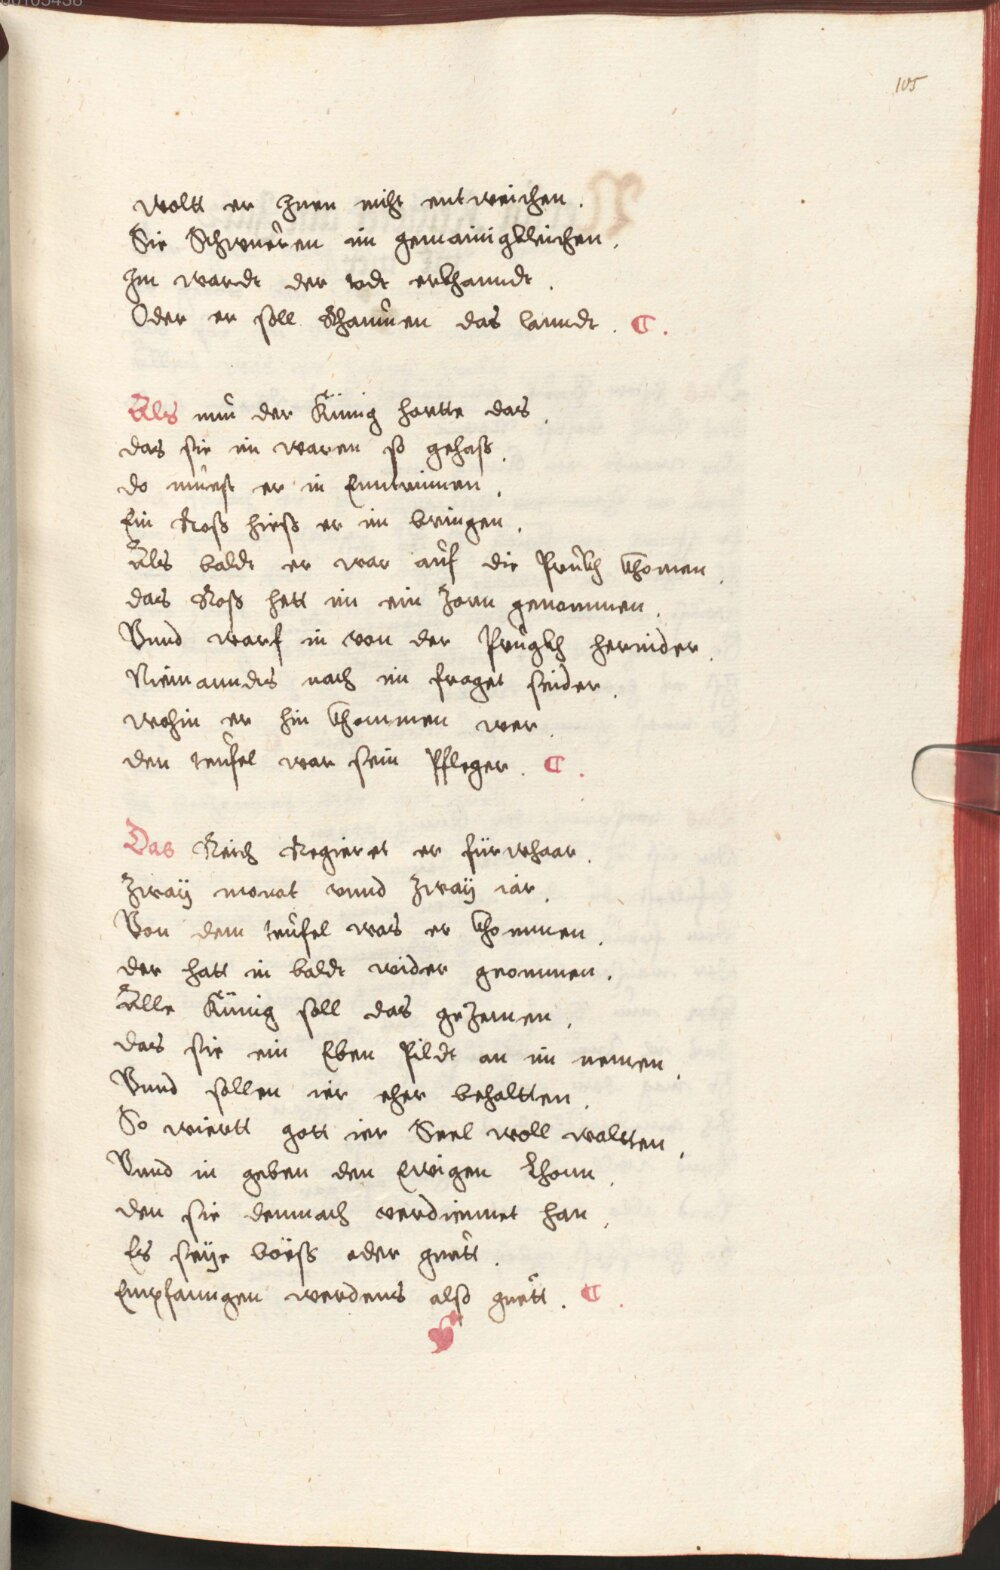 105
woltt er Inen nicht entweichen.
Sie Schwueren im gemainigkleichen.
Im wardt der todt erkhanndt.
Oder er soll Rhaumen das lanndt.
Als nun der Künig hortte das.
das sie im waren so gehaß.
do muest er in Enntrinnen.
Ein Roß hieß er im bringen.
Als baldt er war auf die Prukh khomen.
das Roß hett im ein Zorn genommen.
Vnnd warf in von der Prugkh hernider.
Niemanndts nach im fraget seider.
wohin er hin khommen wer.
den teufel war sein Pfleger.
Das Reich Regieret er fürwhaar.
Zway monat vnnd Zway iar.
Von dem teufel was er khommen.
der hatt in baldt wider gnommen.
Alle Künig soll das geZemen.
das sie ein Eben Pildt an im nemen.
Vnnd sollen ier eher behaltten.
So wiertt gott ier Seel woll waltten.
Vnnd in geben den Ewigen Lhonn.
den sie demnach verdiennet han.
Es seye böeß oder guett.
Empfanngen werdens also guett.